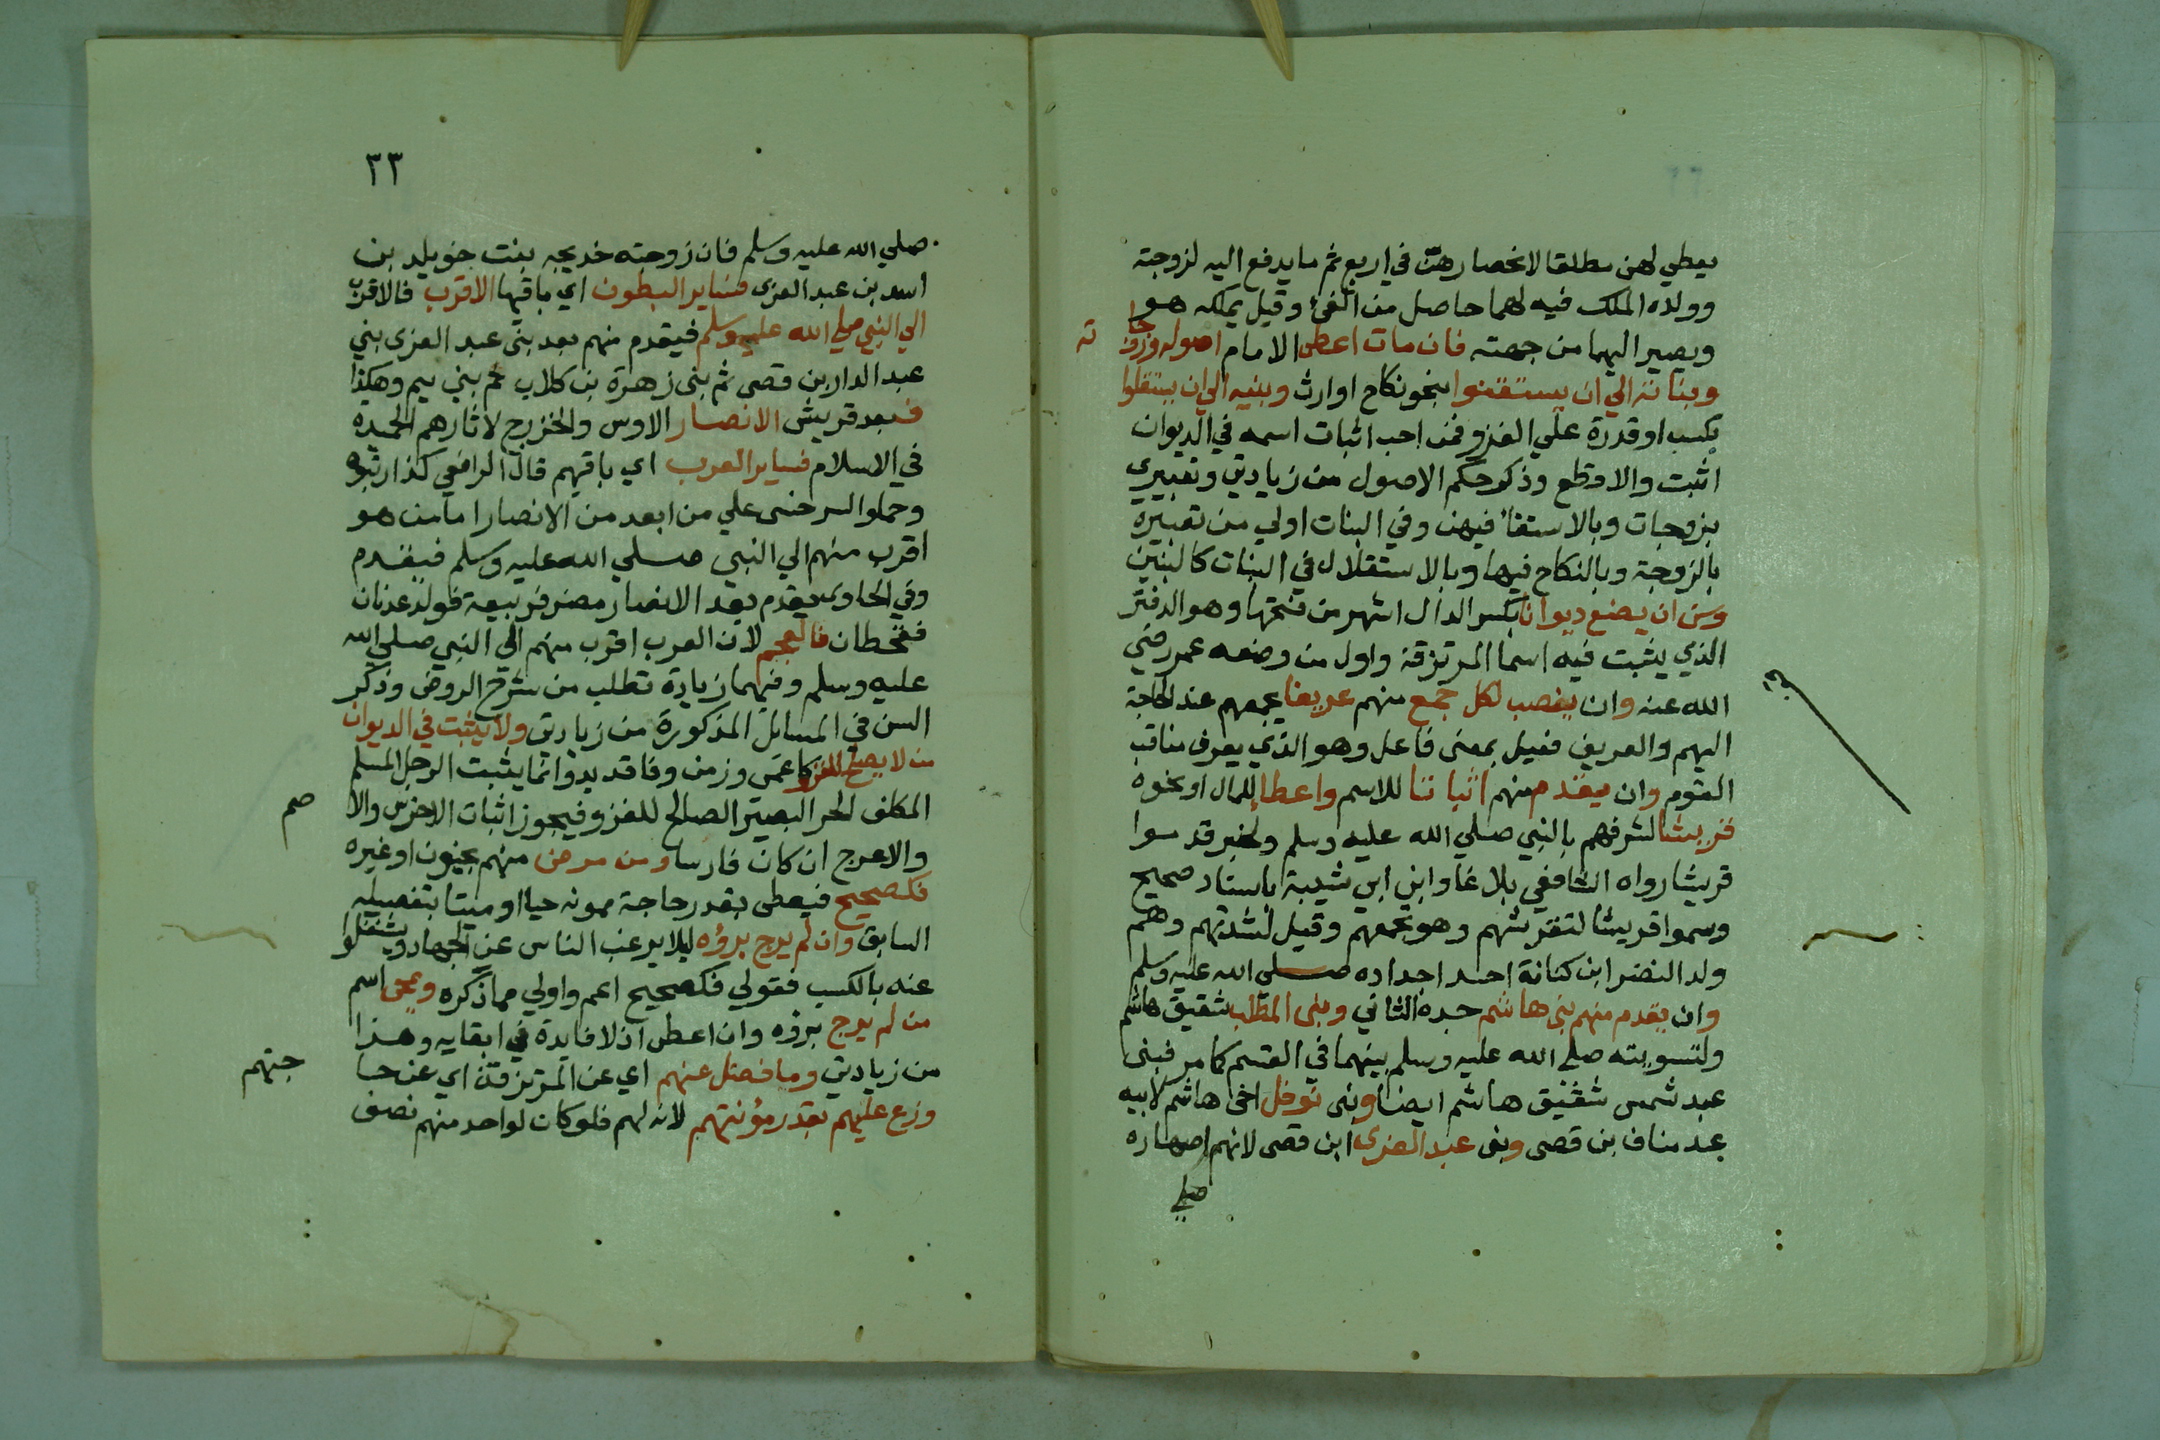 يعطي لهن مطلقا لانحصارهن في اربع ثم ما يدفع اليه لزوجته
وولده الملك فيه لهما حاصل من الفئ وقيل يملكه هو
ويصير اليهما من جهته فان مات اعطي الامام اصوله وزوجا ته
وبناته الي ان يستغنوا بنحو نكاح او ارث وبنيه الي ان يستقلوا
بكسب او قدرة علي الغزو فمن احب اثبات اسمه في الديوان
اثبت والا قطع وذكر حكم الاصول من زيادتي وتعبيري
بزوجات وبالاستغنا فيهن وفي البنات اولي من تعبيره
بالزوجة وبالنكاح فيها وبالاستقلال في البنات كالبنين
وسن ان يضع ديوانا بكسر الدال اشهر من فتحها وهو الدفتر
الذي يثبت فيه اسما المرتزقة واول من وضعه عمر رضي
الله عنه وان ينصب لكل جمع منهم عريفا يجمعهم عند الحاجة
اليهم والعريف فعيل بمعني فاعل وهو الذي يعرف مناقب
القوم وان يقدم منهم اثباتا للاسم واعطا للمال او نحوه
قريشا لشرفهم بالنبي صلي الله عليه وسلم ولخبر قدموا
قريشا رواه الشافعي بلاغا وابن ابي شيبة باسناد صحيح
وسموا قريشا لتقرشهم وهو تجمعهم وقيل لشدتهم وهم
ولد النضر ابن كنانة احد اجداده صلي الله عليه وسلم
وان يقدم منهم بني هاشم جده الثاني وبني المطلب شقيق هاشم
ولتسويته صلي الله عليه وسلم بينهما في القسم كما مر فبني
عبد شمس شقيق هاشم ايضا وبني نوفل اخي هاشم لابيه
عبد مناف بن قصي وبني عبد العزي ابن قصي لانهم اصهاره
صلي
٣٣
صلي الله عليه وسلم فان زوجته خديجه بنت خويلد بن
اسد بن عبد العزي فساير البطون اي باقيها الاقرب فالاقرب
الي النبي صلي الله عليه وسلم فيقدم منهم بعد بني عبد العزي بني
عبد الدار بن قصي ثم بني زهرة بن كلاب ثم بني تيم وهكذا
فبعد قريش الانصار الاوس والخزرج لاثارهم الحميده
في الاسلام فساير العرب اي باقيهم قال الرافعي كذا رتبوه
وحملوا السرخسي علي من ابعد من الانصار اما من هو
اقرب منهم الي النبي صلي الله عليه وسلم فيقدم
وفي الحاوي يقدم بعد الانصار مضر فربيعة فولد عدنان
فقحطان فالعجم لان العرب اقرب منهم الي النبي صلي الله
عليه وسلم وفيهما زيادة تطلب من شرح الروض وذكر
السن في المسائل المذكورة من زيادتي ولا يثبت في الديوان
من لا يصلح للغزو كاعمي وزمن وفاقد يد وانما يثبت الرجل المسلم
المكلف الحر البصير الصالح للغزو فيجوز اثبات الاخرس والا صم
والاعرج ان كان فارسا ومن مرض منهم بجنون او غيره
فكصحيح فيعطي بقدر حاجة ممونه حيا او ميتا بتفصيله
السابق وان لم يرج برؤه ليلا يرغب الناس عن الجهاد ويشتغلوا
عنه بالكسب فقولي فكصحيح اعم واولي مما ذكره ويمحي اسم
من لم يرج برؤه وان اعطي اذ لا فايدة في ابقايه وهذا
من زيادتي وما فضل عنهم اي عن المرتزقة اي عن حا جتهم
وزع عليهم بقدر مؤنتهم لانه لهم فلو كان لواحد منهم نصف